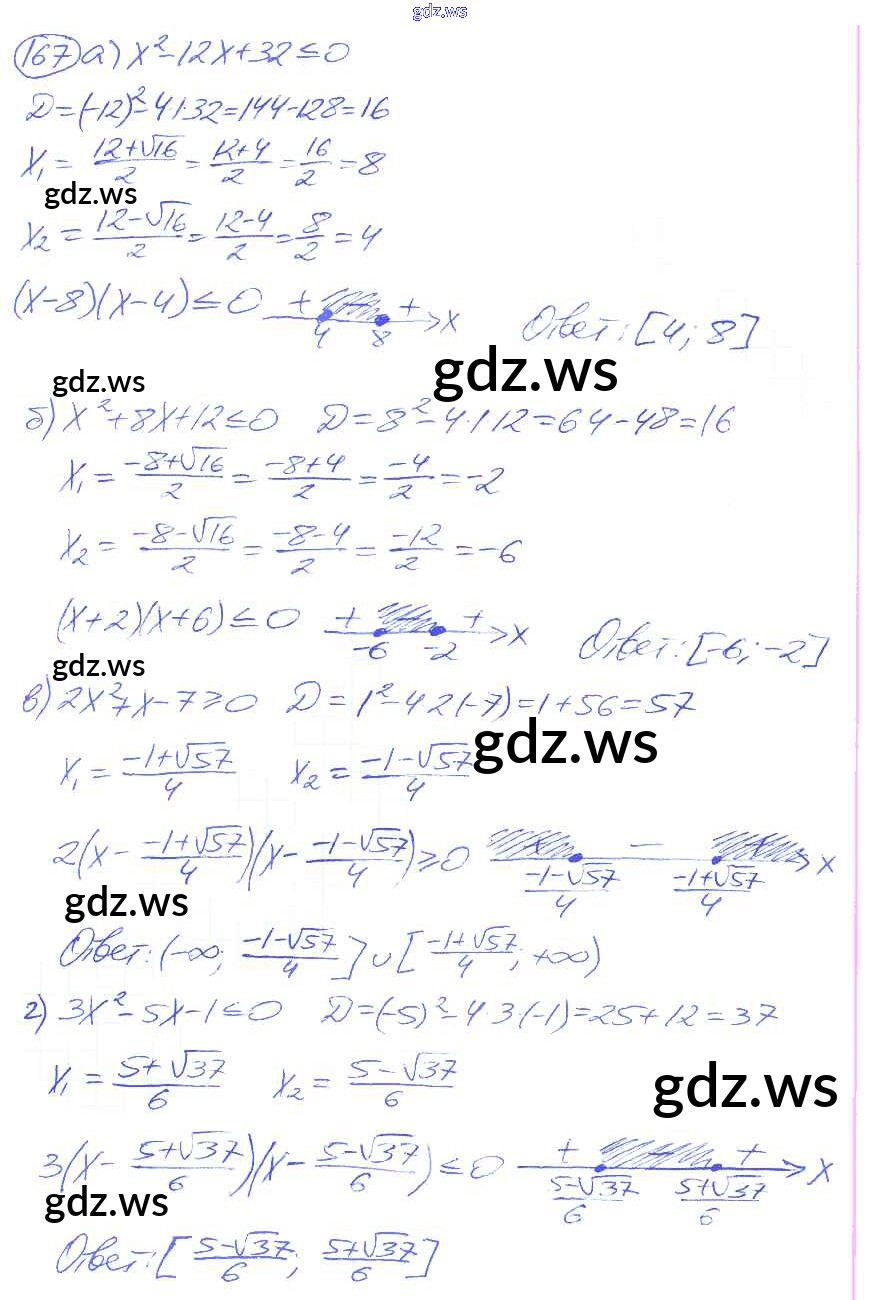 gdz.ws
167 а) x²-12x+32≤0
D=(-12)²-4·1·32=144-128=16
x₁= (12+√16)/2 = (12+4)/2 = 16/2 =8
gdz.ws
x₂= (12-√16)/2 = (12-4)/2 = 8/2 =4
(x-8)(x-4)≤0 + - + x
4 8
Ответ: [4; 8]
gdz.ws
gdz.ws
б) x²+8x+12≤0 D=8²-4·1·12=64-48=16
x₁= (-8+√16)/2 = (-8+4)/2 = -4/2 =-2
x₂= (-8-√16)/2 = (-8-4)/2 = -12/2 =-6
(x+2)(x+6)≤0 + - + x
-6 -2
Ответ: [-6; -2]
gdz.ws
в) 2x²+x-7≥0 D=1²-4·2·(-7)=1+56=57
gdz.ws
x₁= (-1+√57)/4 x₂= (-1-√57)/4
2(x- (-1+√57)/4)(x- (-1-√57)/4)≥0 + - + x
(-1-√57)/4 (-1+√57)/4
gdz.ws
Ответ: (-∞; (-1-√57)/4] ∪ [(-1+√57)/4; +∞)
г) 3x²-5x-1≤0 D=(-5)²-4·3·(-1)=25+12=37
x₁= (5+√37)/6 x₂= (5-√37)/6
gdz.ws
3(x- (5+√37)/6)(x- (5-√37)/6)≤0 + - + x
(5-√37)/6 (5+√37)/6
gdz.ws
Ответ: [(5-√37)/6; (5+√37)/6]